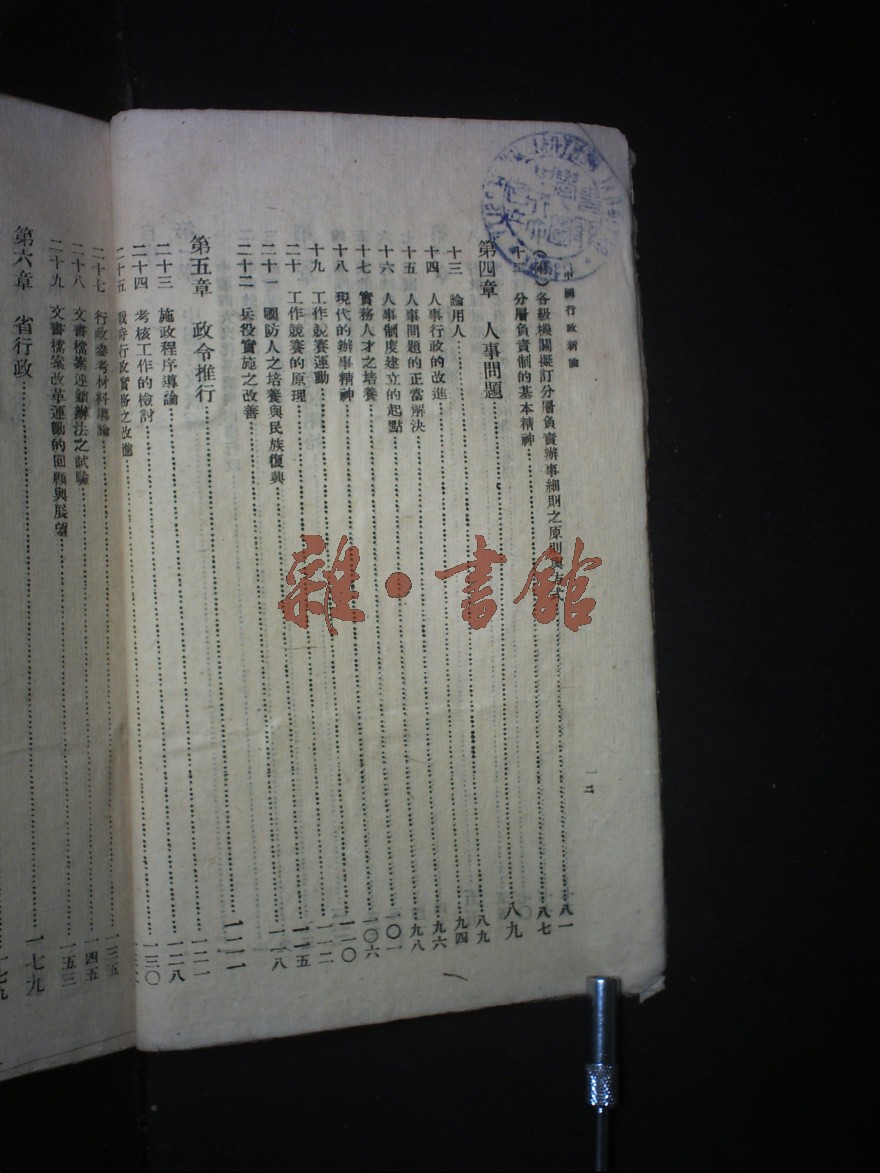 中國行政新論
一二
各級機關擬訂分層負責辦事細則之原則與方式……八一
十二 分層負責制的基本精神……八七
第四章 人事問題……八九
十三 論用人……八九
十四 人事行政的改進……九四
十五 人事問題的正當解決……九六
十六 人事制度建立的起點……九八
十七 實務人才之培養……一〇一
十八 現代的辦事精神……一〇六
十九 工作競賽運動……一一〇
二十 工作競賽的原理……一一二
二十一 國防人之培養與民族復興……一一五
二十二 兵役實施之改善……一一八
第五章 政令推行……一二一
二十三 施政程序導論……一二一
二十四 考核工作的檢討……一二八
二十五 戰時行政實務之改進……一三〇
二十七 行政參考材料導論……一三五
二十八 文書檔案連鎖辦法之試驗……一四五
二十九 文書檔案改革運動的回顧與展望……一五三
第六章 省行政……一七九
一七九
雜·書館